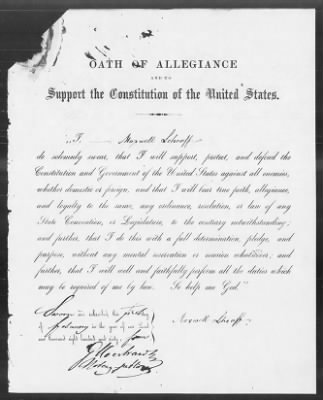 OATH OF ALLEGIANCE
AND TO
Support the Constitution of the United States.
"I, Maxwell
do solemnly swear, that I will support, protect, and defend the
Constitution and Government of the United States against all enemies,
whether domestic or foreign, and that I will bear true faith, allegiance,
and loyalty to the same, any ordinance, resolution, or law of any
State Convention, or Legislature, to the contrary notwithstanding;
and further, that I do this with a full determination, pledge, and
purpose, without any mental reservation or evasion whatsoever; and
further, that I will well and faithfully perform all the duties which
may be required of me by law. So help me God."
Sworn and subscribed this first day
of February in the year of our Lord
one thousand eight hundred and sixty four
Notary Public